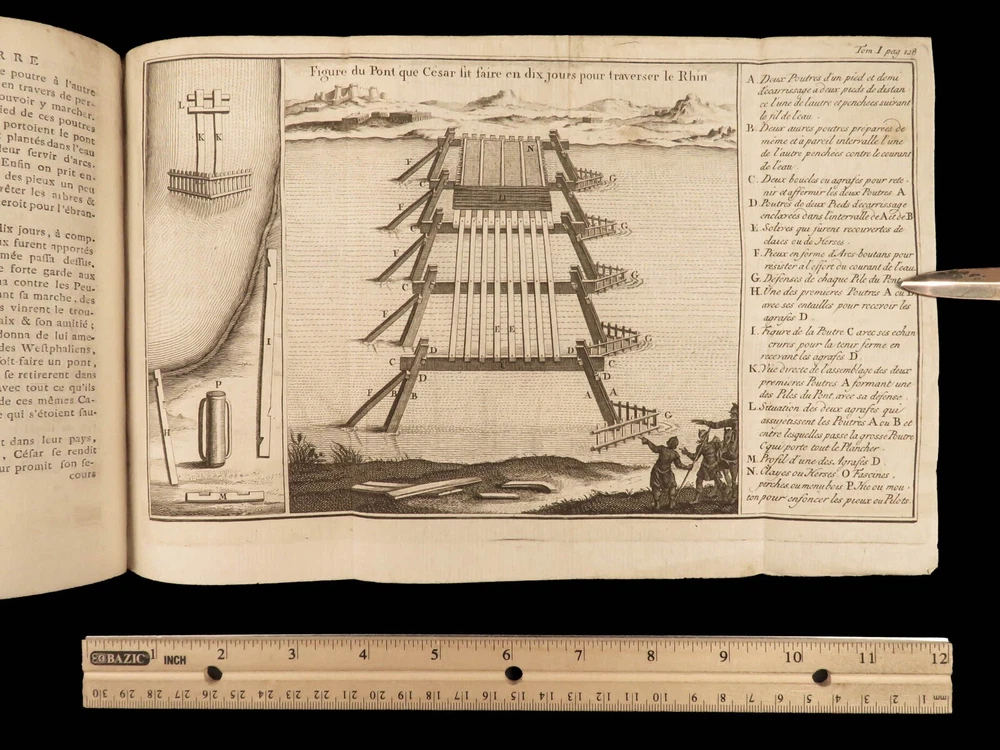 RRE
e poutre à l'autre
en travers de per-
ouvoir y marcher.
ied de ces poutres
portoient le pont
plantés dans l'eau
leur servir d'arcs.
Enfin on prit en-
des pieux un peu
rêter les arbres &
eroit pour l'ébran-
dix jours, à comp-
ux furent apportés
mée passa dessus.
e forte garde aux
na contre les Peu-
ant sa marche, des
s vinrent le trou-
aix & son amitié ;
donna de lui ame-
des Westphaliens,
soit faire un pont,
se retirerent dans
avec tout ce qu'ils
de ces mêmes Ca-
e qui s'étoient sau-
t dans leur pays,
, César se rendit
ur promit son se-
cours
Tom I pag 128
Figure du Pont que César fit faire en dix jours pour traverser le Rhin
L
K K
H
P
I
M
N
D
F
G
C
F
G
F
G
C
F
G
E E
C
D
D
C
C
F
B B
D
D
A
A
G
A. Deux Poutres d'un pied et demi
décarrissage à deux pieds de distan
ce l'une de l'autre et penchées suivant
le fil de l'eau.
B. Deux autres poutres préparées de
meme et a pareil intervalle l'une
de l'autre penchées contre le courant
de l'eau
C. Deux boucles ou agrafes pour rete-
nir et affermir les deux Poutres A
D. Poutres de deux Pieds décarrissage
enclavées dans l'intervalle de A et de B
E. Solives qui furent recouvertes de
claies ou de Herses.
F. Pieux en forme d'Arcs-boutans pour
resister a l'effort ou courant de l'eau.
G. Défenses de chaque Pile du Pont
H. Une des premieres Poutres A ou B
avec ses entailles pour recevoir les
agrafes D.
I. Figure de la Poutre C avec ses echan
crures pour la tenir ferme en
recevant les agrafes D.
K. Vue directe de l'assemblage des deux
premieres Poutres A formant une
des Piles du Pont, avec sa defense.
L. Situation des deux agrafes qui
assujetissent les Poutres A ou B et
entre lesquelles passe la grosse Poutre
C qui porte tout le Plancher.
M. Profil d'une des Agrafes D.
N. Clayes ou Herses. O Fascines,
perches, ou menu bois P. Hie ou mou-
ton pour enfoncer les pieux ou Pilots.
BAZIC
INCH
1 2 3 4 5 6 7 8 9 10 11 12
30 29 28 27 26 25 24 23 22 21 20 19 18 17 16 15 14 13 12 11 10 9 8 7 6 5 4 3 2 1 mm